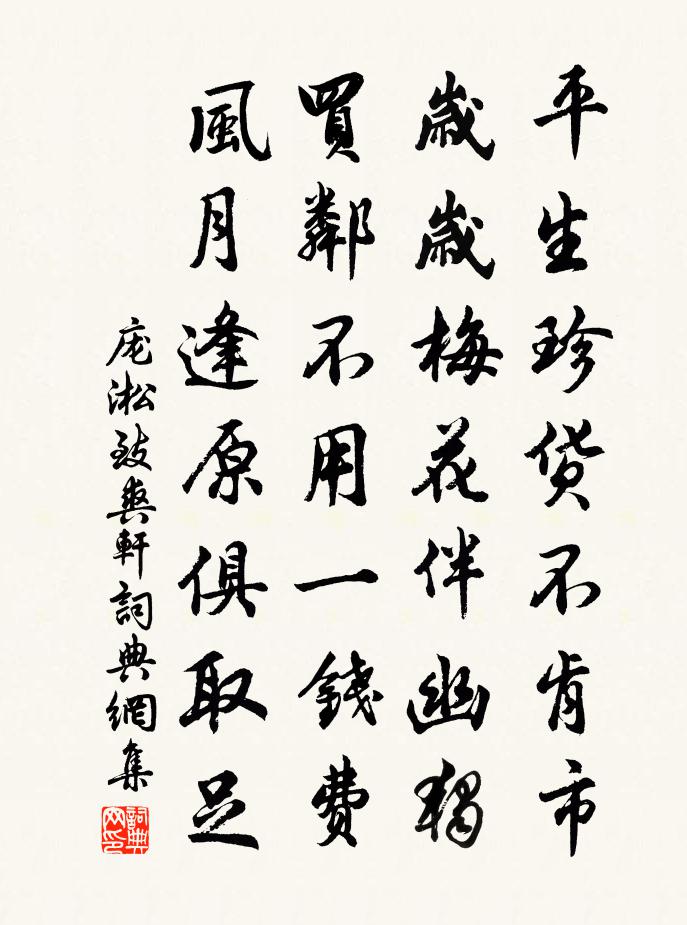 平生珍貨不肯市
歲歲梅花伴幽獨
買鄰不用一錢費
風月逢原俱取足
庞淞致爽軒詞典網集
詞典
网印